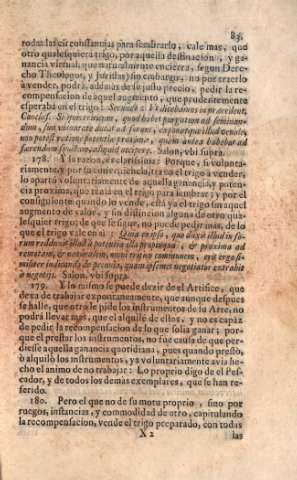 83
todas las circonstancias para sembrarlo, vale mas, que
otro qualesquiera trigo, por aquella destinacion, y ga-
nancia virtual, que naturalmente encierra, segun Dere-
cho Theologos, y Juristas; sin embargo, no por traerlo
à vender, podrà, ademàs de su justo precio, pedir la re-
compensacion de aquel augmento, que prudentemente
esperaba en el trigo:
Conclus. Si quis triticum, quod habet purgatum ad seminan-
dum, sua voluntate ducat ad forum, exponatque illud venale,
non potest ratione potentiæ proximæ, quam antea habebat ad
faciendum semen, aliquid exigere. Salon, vbi supra.
178. Y la razon, es clarissima: Porque, si volunta-
riamente, y por su consequencia, traxo el trigo à vender,
lo apartò voluntariamente de aquella ganancia, y poten-
cia proxima, que tenia en el trigo para sembrar; y por el
consiguiente quando lo vende, està ya el trigo sin aquel
augmento de valor, y sin distincion alguna de otro qua-
lesquier trigo: de que se sigue, no puede pedir mas, de lo
que el trigo vale en sì: Quia eo ipso, quod duxit illud in fo-
rum reddidit illud à potentia illa propinqua, & proxima ad
remotam, & naturalem, moti tritici communem,
Salon, vbi supra.
179. Y lo mismo se puede dezir de el Artifice, que
dexa de trabajar expontaneamente, que aunque despues
se halle, que otro le pide los instrumentos de su Arte, no
podrà llevar mas, que el alquile de ellos, y no es capaz
de pedir la recompensacion de lo que solia ganar; por-
que el prestar los instrumentos, no fue causa de que per-
diesse aquella ganancia quotidiana, pues quando prestò,
ò alquilò los instrumentos, ya voluntariamente avia he-
cho el animo de no trabajar: Lo proprio digo de el Pes-
cador, y de todos los demas exemplares, que se han re-
ferido.
180. Pero el que no de su motu proprio, sino por
ruegos, instancias, y commodidad de otro, capitulando
la recompensacion, vende el trigo preparado, con todas
X2 las